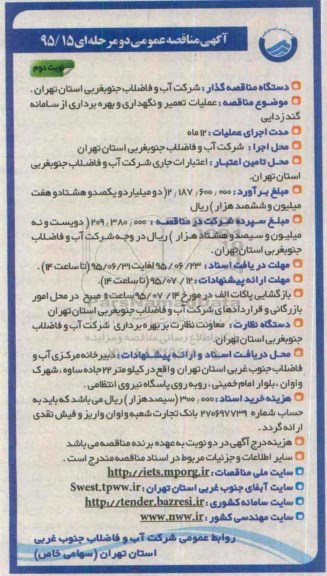 آگهی مناقصه عمومی دو مرحله ای ۹۵/۱۵
نوبت دوم
دستگاه مناقصه گذار : شرکت آب و فاضلاب جنوبغربی استان تهران .
موضوع مناقصه : عملیات تعمیر و نگهداری و بهره برداری از سامانه
گندزدایی
مدت اجرای عملیات : ۱۲ ماه
محل اجرا : شرکت آب و فاضلاب جنوبغربی استان تهران
محل تامین اعتبار : اعتبارات جاری شرکت آب و فاضلاب جنوبغربی
استان تهران.
مبلغ برآورد : ۲,۱۸۷,۶۰۰,۰۰۰ ( دو میلیارد و یکصد و هشتاد و هفت
میلیون و ششصد هزار ) ریال
مبلغ سپرده شرکت در مناقصه : ۲۰۹,۳۸۰,۰۰۰ ( دویست و نه
میلیون و سیصد و هشتاد هزار ) ریال در وجه شرکت آب و فاضلاب
جنوبغربی استان تهران.
مهلت دریافت اسناد : ۹۵/۰۶/۲۳ لغایت ۹۵/۰۶/۳۱ (تا ساعت ۱۴) .
مهلت ارائه پیشنهادات : ۹۵/۰۷/۱۲ (تا ساعت ۱۴).
بازگشایی پاکات الف در مورخ ۹۵/۰۷/۱۴ ساعت ۱۱ صبح در محل امور
بازرگانی و قراردادهای شرکت آب و فاضلاب جنوبغربی استان تهران
دستگاه نظارت : معاونت نظارت بر بهره برداری شرکت آب و فاضلاب
جنوبغربی استان تهران.
محل دریافت اسناد و ارائه پیشنهادات : دبیرخانه مرکزی آب و
فاضلاب جنوب غربی استان تهران واقع در کیلومتر ۲۲ جاده ساوه ، شهرک
واوان ، بلوار امام خمینی ، روبه روی پاسگاه نیروی انتظامی.
هزینه خرید اسناد : ۳۰۰,۰۰۰ (سیصد هزار ) ریال می باشد که باید به
حساب شماره ۲۷۰۶۹۷۷۳۹ بانک تجارت شعبه واوان واریز و فیش نقدی
ارائه گردد.
هزینه درج آگهی در دو نوبت به عهده برنده مناقصه می باشد
سایر اطلاعات و جزئیات مربوط در اسناد مناقصه مندرج است .
سایت ملی مناقصات : http://iets.mporg.ir
سایت آبفای جنوب غربی استان تهران : Swest.tpww.ir
سایت سامانه کشوری : http://tender.bazresi.ir
سایت مهندسی کشور : www.nww.ir
روابط عمومی شرکت آب و فاضلاب جنوب غربی
استان تهران (سهامی خاص)